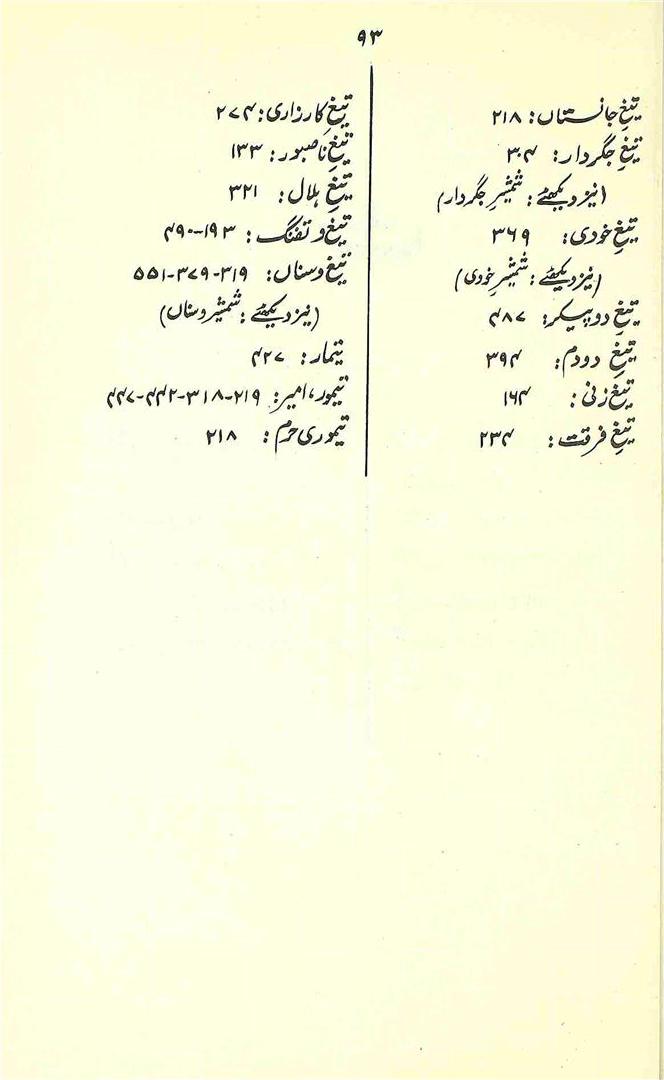 ۹۳
تیغِ جانستاں: ۲۱۸
تیغِ جگردار: ۳۰۴
(نیز دیکھئے: شمشیرِ جگردار)
تیغِ خودی: ۳۶۹
(نیز دیکھئے: شمشیرِ خودی)
تیغِ دو پیکر: ۴۸۷
تیغِ دو دم: ۳۹۴
تیغ زنی: ۱۶۴
تیغِ فرقت: ۲۳۴
تیغِ کارزاری: ۲۷۴
تیغِ ناصبور: ۱۳۳
تیغِ ہلال: ۳۲۱
تیغ و تفنگ: ۱۹۳-۴۹۰
تیغ و سناں: ۳۱۹-۳۷۹-۵۵۱
(نیز دیکھئے: شمشیر و سناں)
تیمار: ۴۲۷
تیمور، امیر: ۲۱۹-۳۱۸-۴۴۲-۴۴۷
تیموری حرم: ۲۱۸